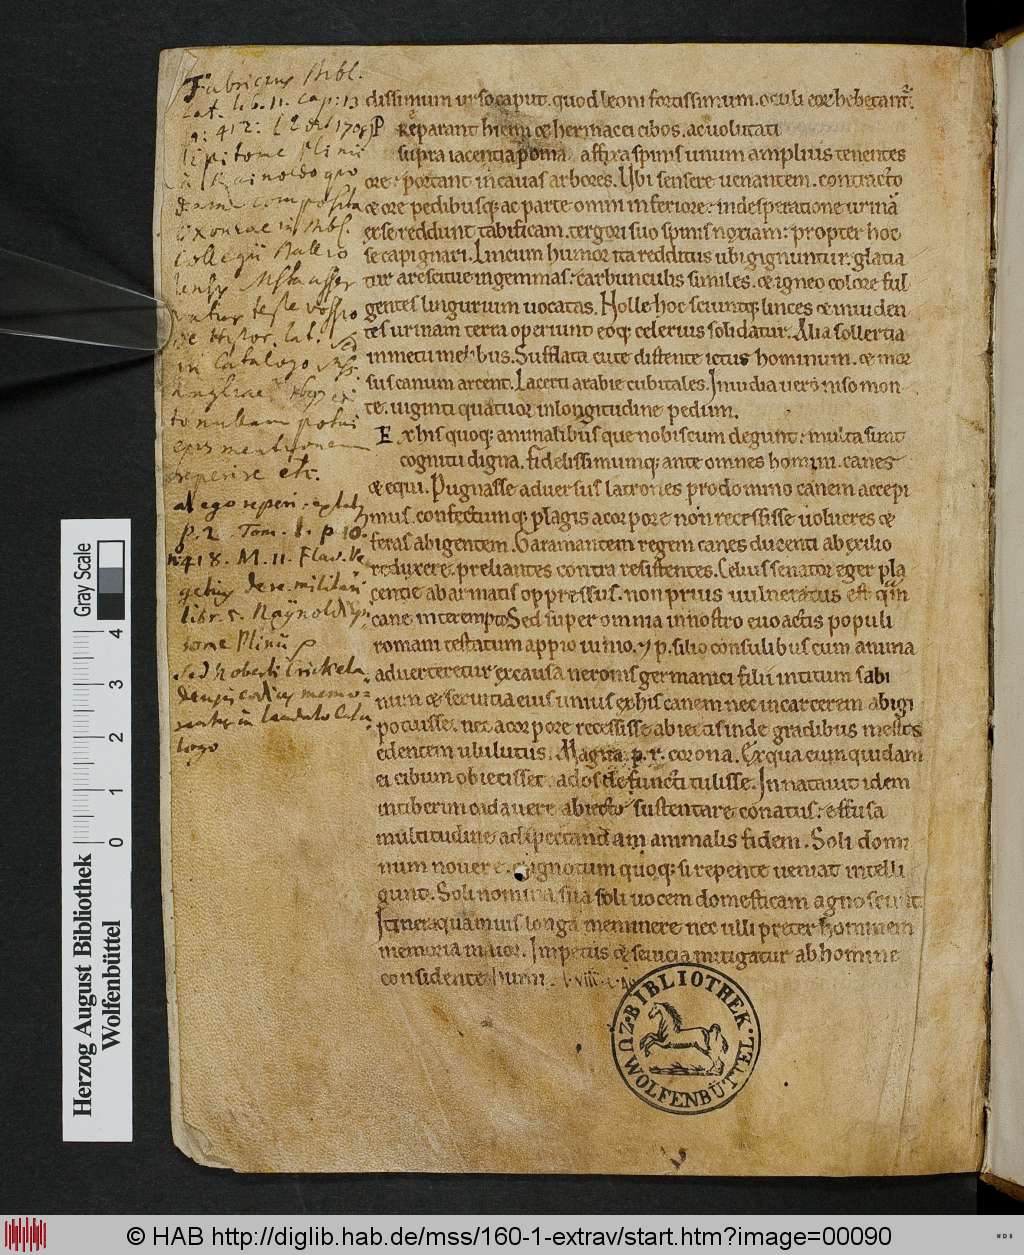 Fabricius Bibl.
Lat. lib. 11. cap: 13
p: 412:
Epitome Plinii
â Rainoldo quo
dam composita
Collegii Ballio
lensi Msta asser
vatur teste Vossio
de Histor. lat. Sed
in Catalogo Mss.
Angliae 1697 edi
to nullam potui
ejus mentionem
reperire etc.
at ego reperi
P. 2. Tom. 1. p 10.
n. 418. M. 11. Flav. Ve
getius de re militari
libr. 5.
tome Plinii
Sed Roberti Crickela
densis codicis memo-
rantur in laudato Cata
logo
dissimum urso caput. quod leoni fortissimum. oculi eorum hebetantur.
Preparant hiemi & hermacei cibos. ac uolutati
supra iacentia poma affixa spinis unum amplius tenentes
ore: portant in cauas arbores. Ubi sensere uenantem. contracto
& ore pedibusq; ac parte omni inferiore: in desperatione urinam
ex se reddunt tabificam. tergori suo spinis noxiam: propter hoc
se capi gnari. Lincum humor ita redditus ubi gignuntur. glacia
tur arescitue in gemmas: carbunculis similes. & igneo colore ful
gentes lingurium uocatas. Nolle hoc sciuntq; linces & inuiden
tes urinam terra operiunt eoq; celerius solidatur. Alia sollertia
inmetu melibus. Sufflata cute distente ictus hominum. & mor
sus canum arcent. Lacerti arabie cubitales. In india uero in so mon
te. uiginti quatuor in longitudine pedum.
Ex his quoq; animalibus que nobiscum degunt: multa sunt
cognitu digna. fidelissimumq; ante omnes homini. canes
& equi. Pugnasse aduersus latrones pro domino canem accepi
mus. confectumq; plagis a corpore non recessisse uolucres &
feras abigentem. Garamantem regem canes ducenti ab exilio
reduxere. preliantes contra resistentes. Celius senator eger pla
centie ab armatis oppressus. non prius uulneratus est quam
cane interempto. Sed super omnia in nostro euo actis populi
romani testatum appio iunio. & p. silio consulibus cum anima
aduerteretur ex causa neronis germanici filii in titum sabi
num & seruitia eius unius ex his canem nec in carcerem abigi
potuisse. nec a corpore recessisse abiecti sinde gradibus mestos
edentem ululatus. Magna p. r. corona. Ex qua cum quidam
ei cibum obiecisset. ad os defuncti tulisse. Innatauit idem
in tiberim cadauere abiecto sustentare conatus: effusa
multitudine ad spectandam animalis fidem. Soli domi
num nouere. & ignotum quoq; si repente ueniat intelli
gunt. Soli nomina sua soli uocem domesticam agnoscunt.
Itinera quamuis longa meminere nec ulli preter hominem
memoria maior. Impetus & seuicia mitigatur ab homine
considente humi.
BIBLIOTHEK
ZU WOLFENBÜTTEL
Gray Scale
0 1 2 3 4
Herzog August Bibliothek
Wolfenbüttel
© HAB http://diglib.hab.de/mss/160-1-extrav/start.htm?image=00090